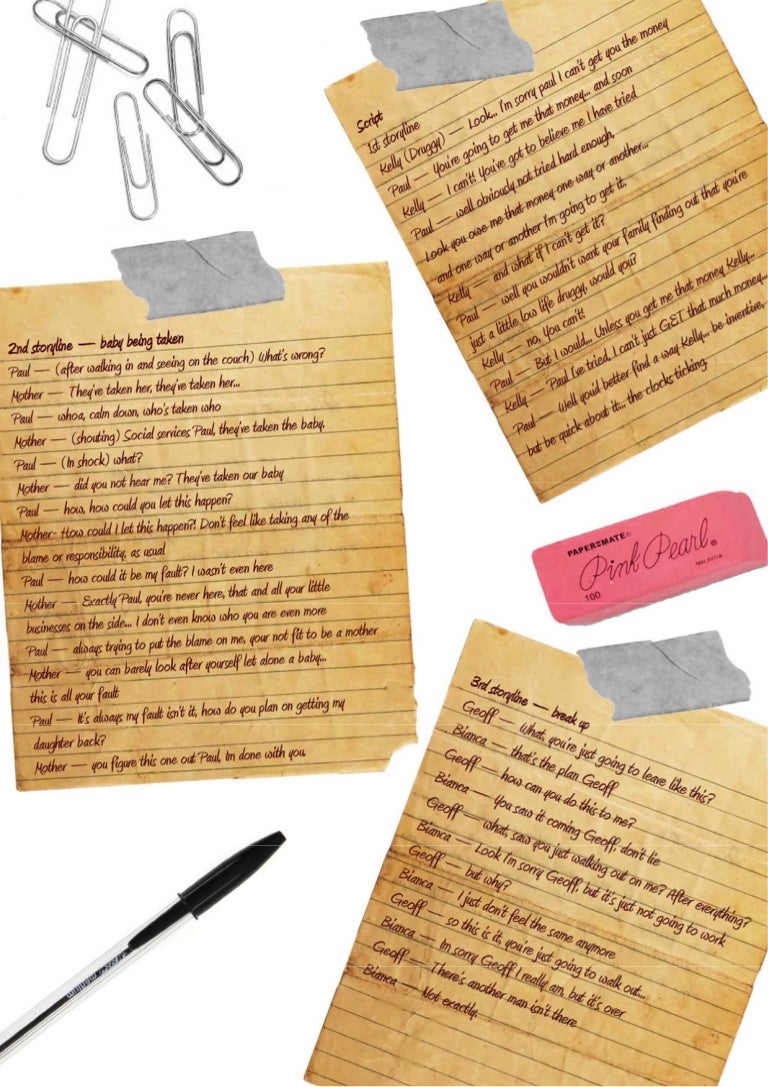 Script
1st storyline
Kelly (Druggy) — Look... I'm sorry paul I can't get you the money
Paul — You're going to get me that money... and soon
Kelly — I can't! You've got to believe me I have tried
Paul — well obviously not tried hard enough,
Look you owe me that money one way or another...
and one way or another I'm going to get it.
Kelly — and what if I can't get it?
Paul — well you wouldn't want your family finding out that you're
just a little low life druggy, would you?
Kelly — no, You can't!
Paul — But I would... Unless you get me that money Kelly...
Kelly — Paul I've tried. I can't just GET that much money...
Paul — Well you'd better find a way Kelly... be inventive,
but be quick about it... the clocks ticking.
2nd storyline — baby being taken
Paul — (after walking in and seeing on the couch) What's wrong?
Mother — They've taken her, they've taken her...
Paul — whoa, calm down, who's taken who
Mother — (shouting) Social services Paul, they've taken the baby.
Paul — (In shock) what?
Mother — did you not hear me? They've taken our baby
Paul — how, how could you let this happen?
Mother- How could I let this happen?! Don't feel like taking any of the
blame or responsibility, as usual
Paul — how could it be my fault? I wasn't even here
Mother — Exactly Paul, you're never here, that and all your little
businesses on the side... I don't even know who you are even more
Paul — always trying to put the blame on me, your not fit to be a mother
Mother — you can barely look after yourself let alone a baby...
this is all your fault
Paul — It's always my fault isn't it, how do you plan on getting my
daughter back?
Mother — you figure this one out Paul, Im done with you.
PAPER MATE®
Pink Pearl®
100
MALAYSIA
3rd storyline — break up
Geoff — What, you're just going to leave like this?
Bianca — that's the plan Geoff
Geoff — how can you do this to me?
Bianca — You saw it coming Geoff, don't lie
Geoff — what, saw you just walking out on me? After everything?
Bianca — Look I'm sorry Geoff, but it's just not going to work
Geoff — but why?
Bianca — I just don't feel the same anymore
Geoff — so this is it, you're just going to walk out...
Bianca — Im sorry Geoff I really am, but it's over
Geoff — There's another man isn't there
Bianca — Not exactly.